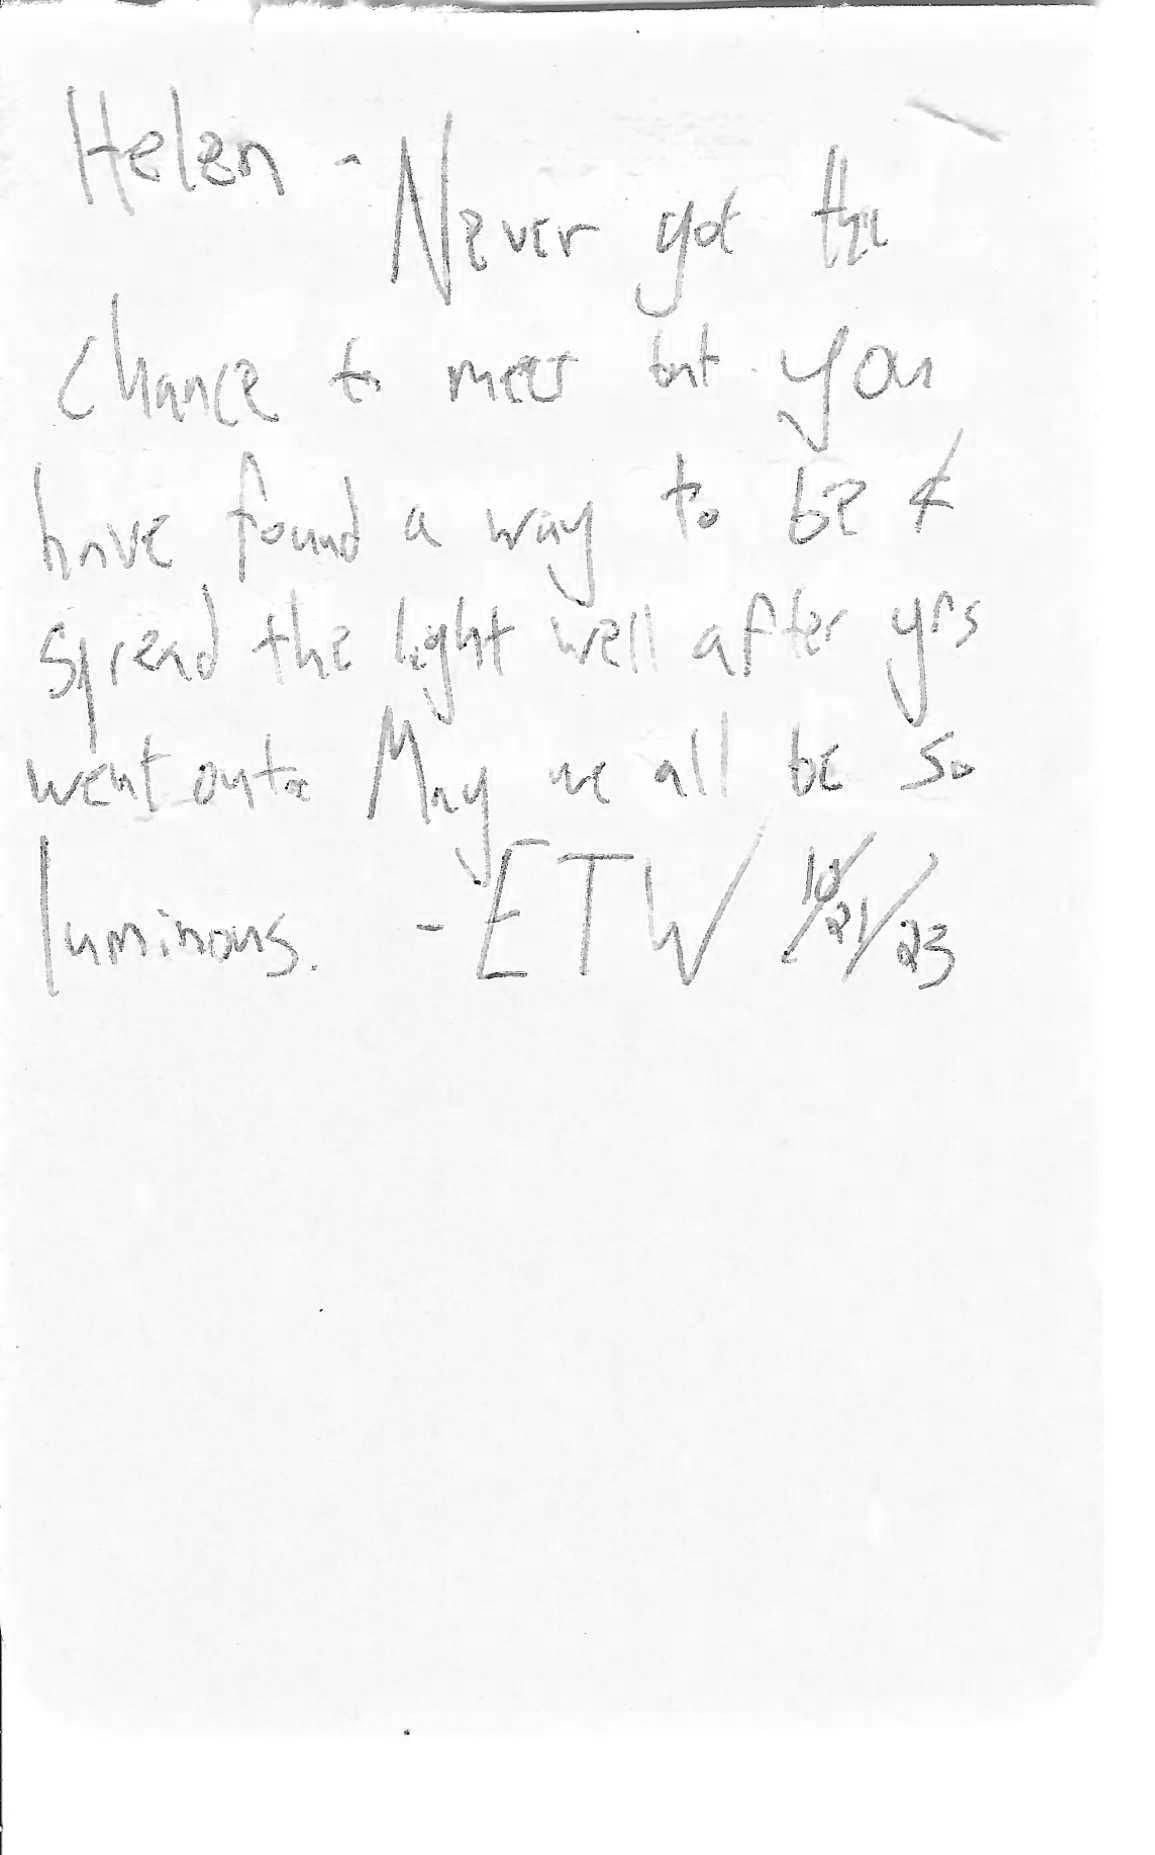 Helen - Never got the
chance to meet but you
have found a way to be &
spread the light well after yrs
went out. May we all be so
luminous. - ETW 10/21/23